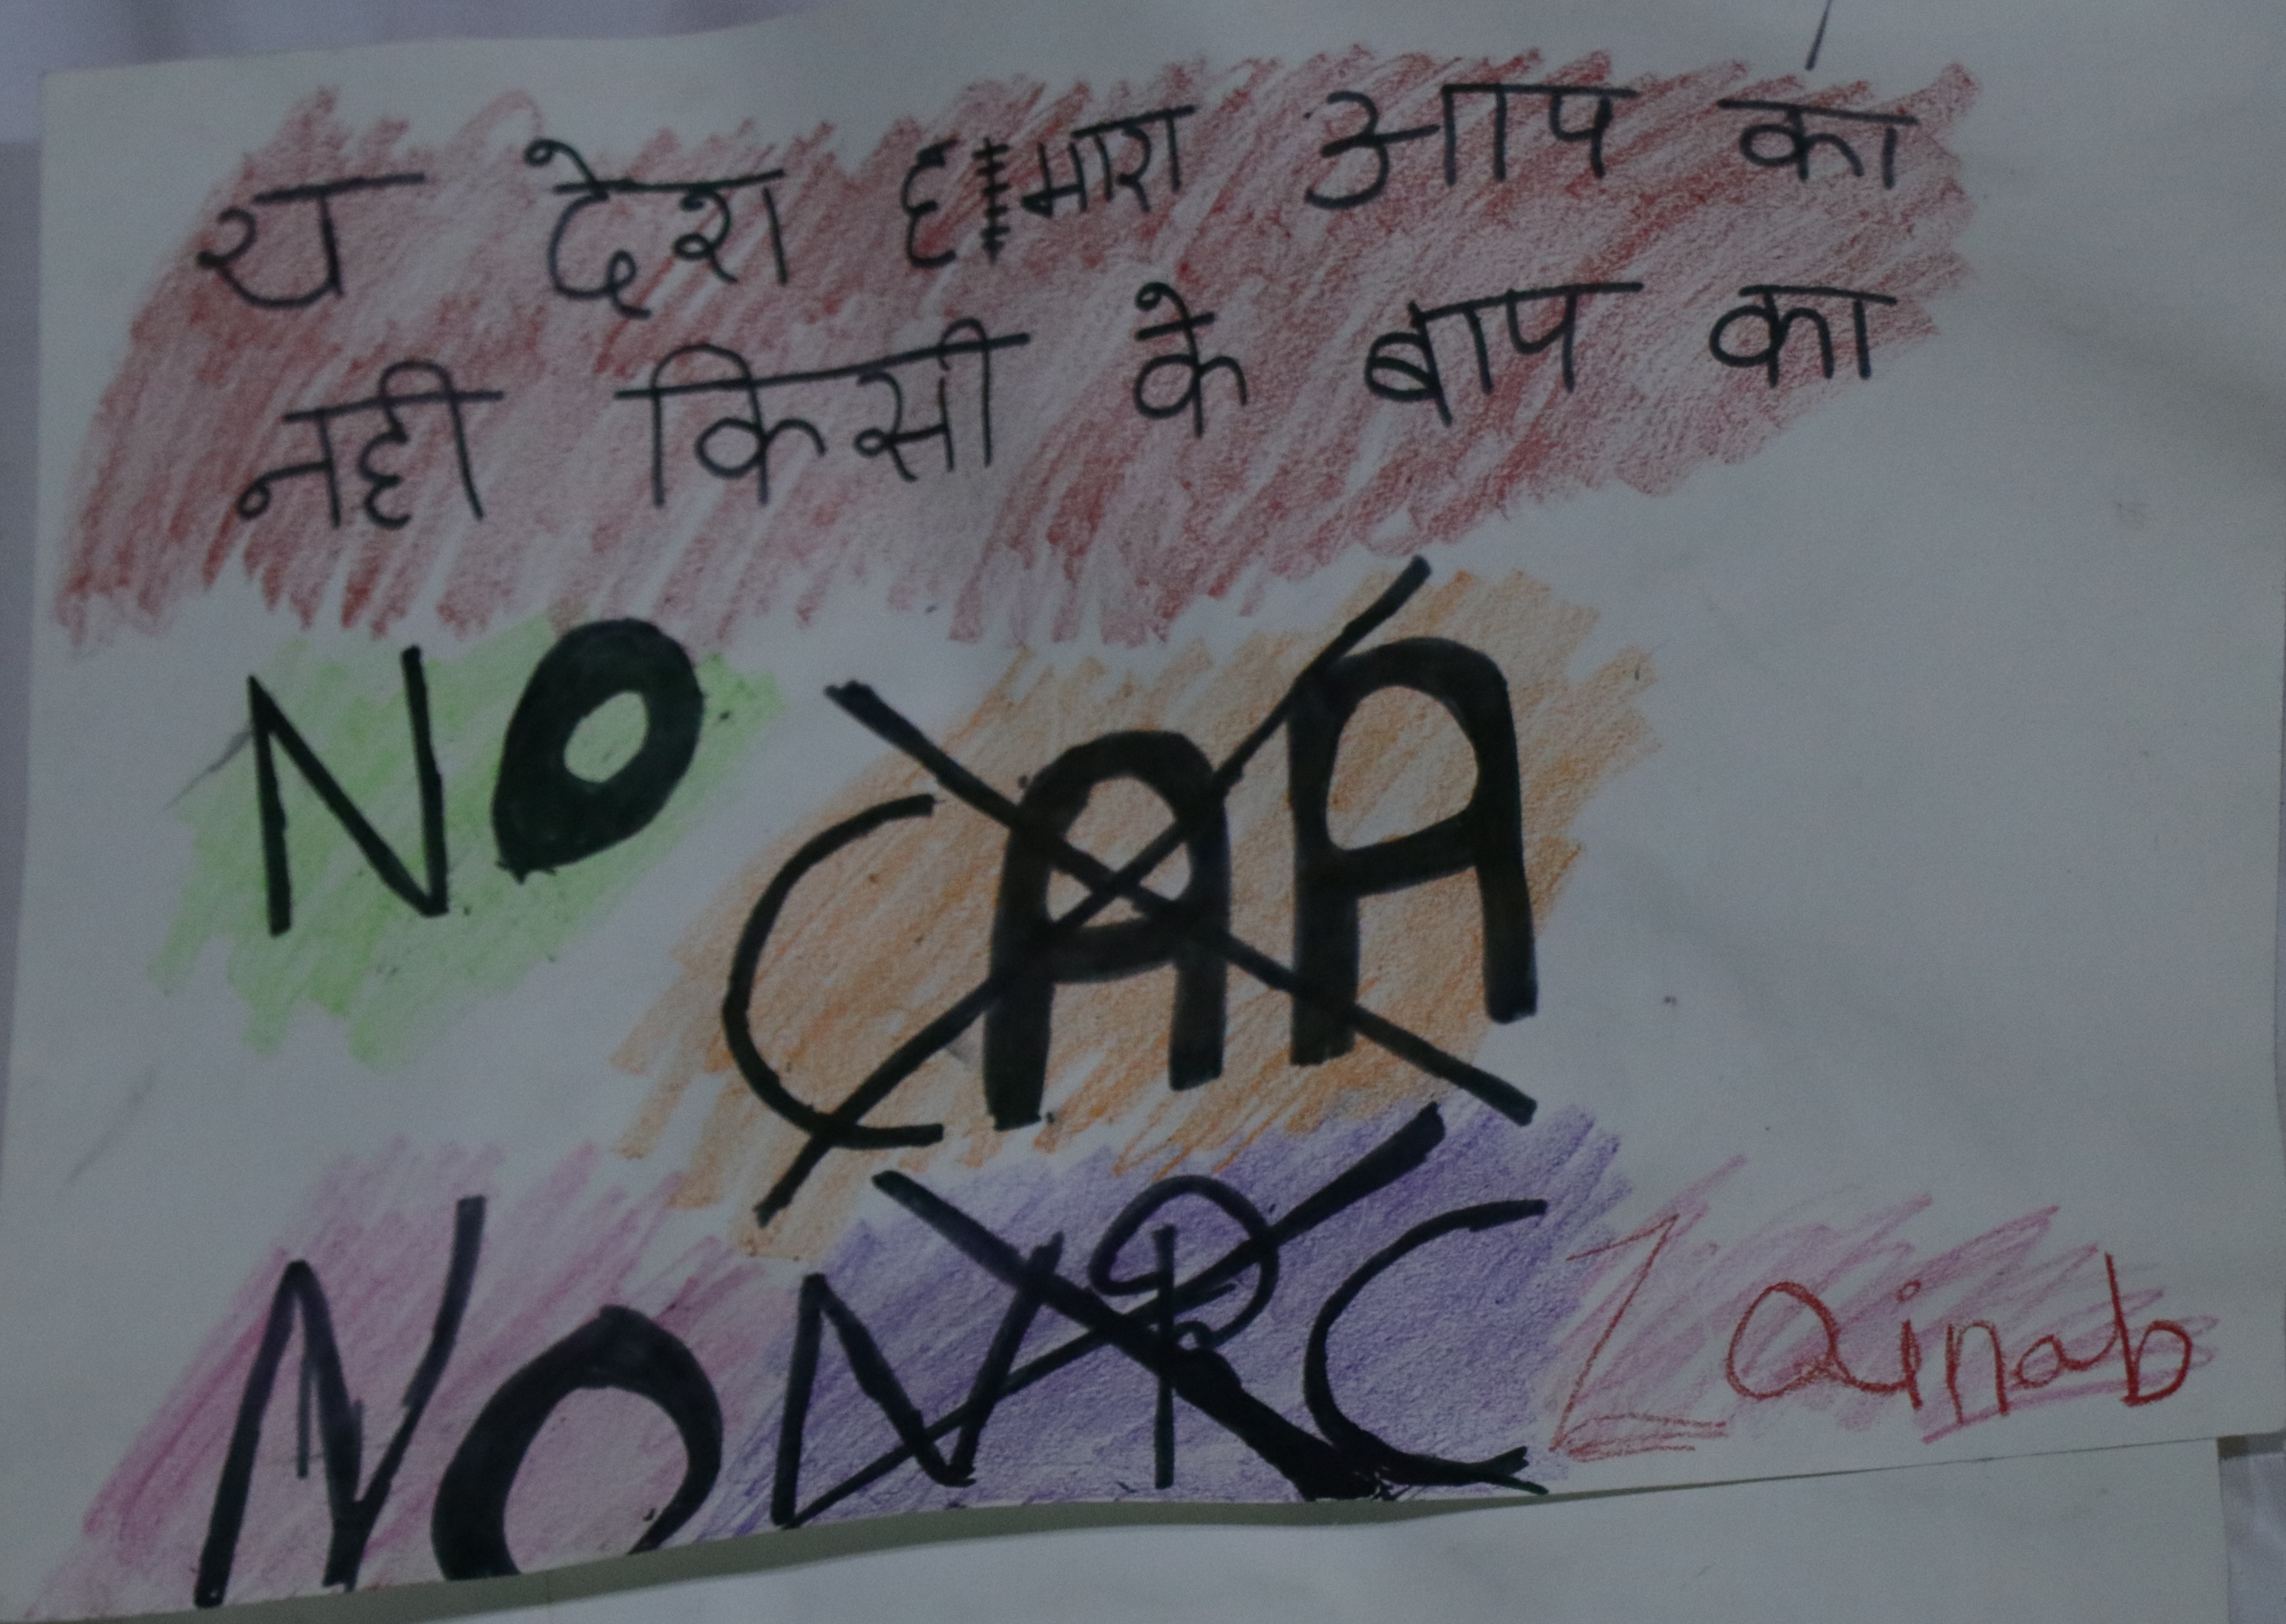 य देश हमारा आप का
नही किसी के बाप का
NO CAA
NO NRC
Zainab